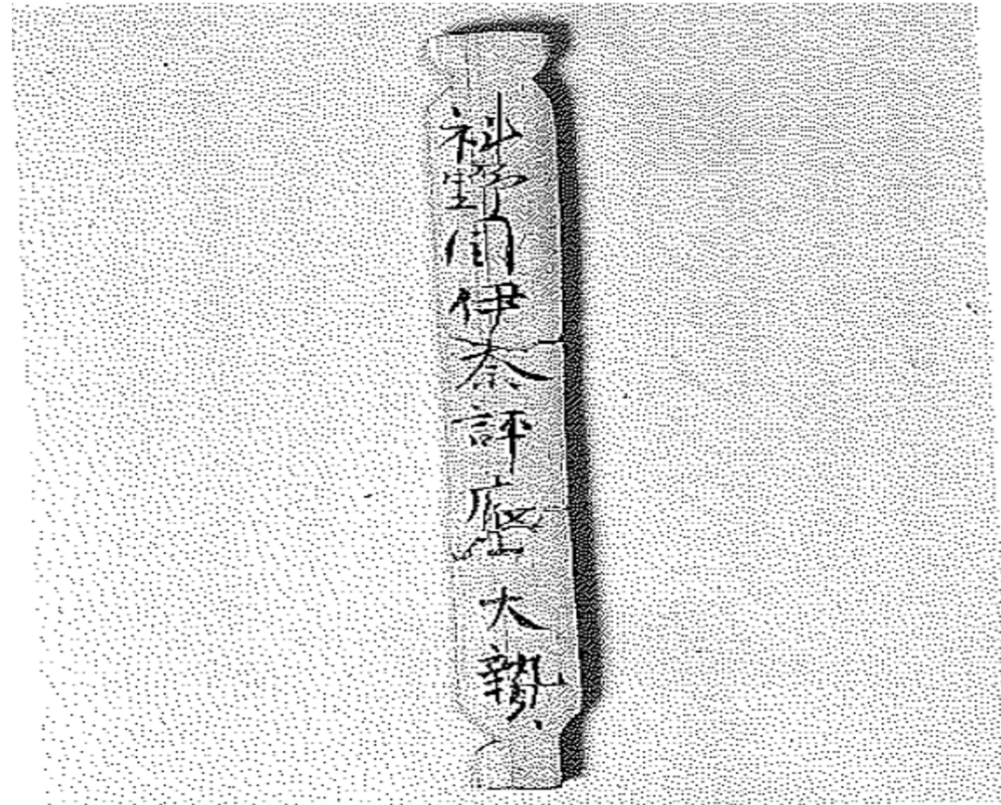 科野国伊奈評大贄